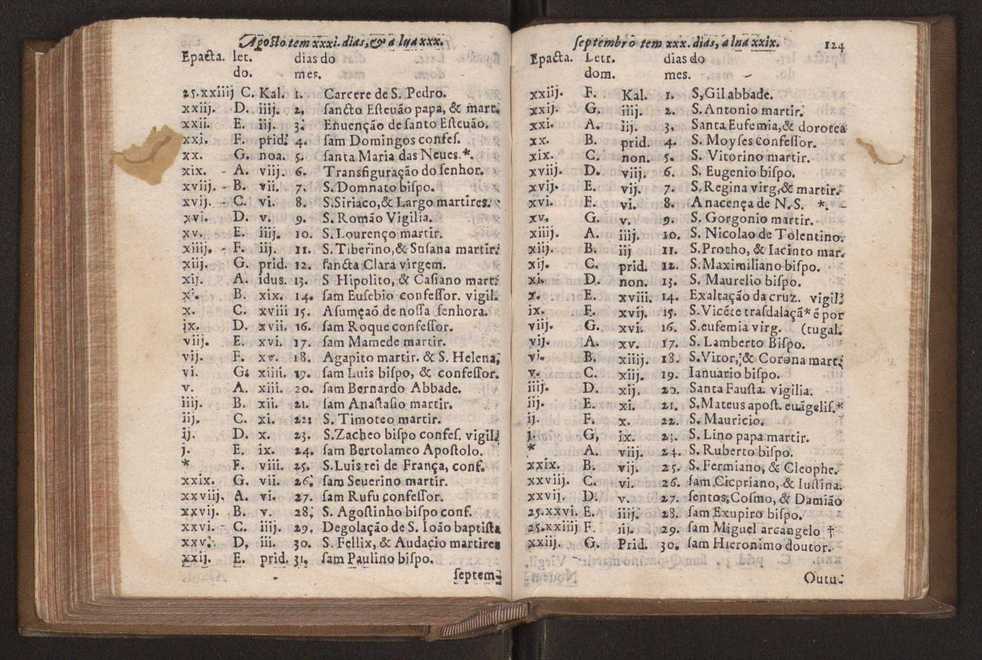 Agosto tem xxxi. dias, & a lũa xxx.
Epacta. let. dias do
do. mes.
25.xxiiij C. Kal. 1. Carcere de S. Pedro.
xxiij. D. iiij. 2, sancto Esteuão papa, & mart.
xxii. E. iij. 3. Enuenção de santo Esteuão.
xxi. F. prid. 4. sam Domingos confes.
xx. G. noa. 5. santa Maria das Neues.*.
xix. A. viij. 6. Transfiguração do senhor.
xviij. B. vii. 7. S. Domnato bispo.
xvij. C. vi. 8. S. Siriaco, & Largo martires.
xvi. D. v. 9. S. Romão Vigilia.
xv. E. iiij. 10. S. Lourenço martir.
xiiij. F. iij. 11. S. Tiberino, & Susana martir.
xiij. G. prid. 12. sancta Clara virgem.
xij. A. idus. 13. S Hipolito, & Casiano mart.
xi. B. xix. 14. sam Eusebio confessor. vigil.
x. C. xviii 15. Asumçaõ de nossa senhora.
ix. D. xvii. 16. sam Roque confessor.
viij. E. xvi. 17. sam Mamede martir.
vij. F. xv. 18. Agapito martir. & S. Helena.
vi. G. xiiii. 19. sam Luis bispo, & confessor.
v. A. xiii. 20. sam Bernardo Abbade.
iiij. B. xii. 21. sam Anastasio martir.
iij. C. xi. 22. S. Timoteo martir.
ij. D. x. 23. S. Zacheo bispo confes. vigil.
j. E. ix. 24. sam Bertolameo Apostolo.
* F. viii. 25. S. Luis rei de França, conf.
xxix. G. vii. 26. sam Seuerino martir.
xxviij. A. vi. 27. sam Rufu confessor.
xxvij. B. v. 28. S. Agostinho bispo conf.
xxvi. C. iiij. 29. Degolação de S. Ioão baptista
xxv. D, iii. 30. S. Fellix, & Audacio martires
xxij. E. prid. 31. sam Paulino bispo.
septem-
septembro tem xxx. dias, a lua xxix. 124
Epacta. Letr. dias do
dom. mes.
xxiij. F. Kal. 1. S, Gil abbade.
xxij. G. iiij. 2. S. Antonio martir.
xxi. A. iij. 3. Santa Eufemia, & dorotea
xx. B. prid. 4. S. Moyses confessor.
xix. C. non. 5. S. Vitorino martir.
xviij. D. viij. 6. S. Eugenio bispo.
xvij. E. vij. 7. S. Regina virg, & martir.
xvi. F. vi. 8. A nacença de N. S. *.
xv. G. v. 9. S. Gorgonio martir.
xiiij. A. iiij. 10. S. Nicolao de Tolentino.
xiij. B. iij 11. S. Protho, & Iacinto mar.
xij. C. prid. 12. S. Maximiliano bispo.
xi. D. non. 13. S. Maurelio bispo.
x. E. xviii. 14. Exaltação da cruz. vigil.
ix. F. xvij. 15. S. Vicẽte trasdalaçã * é por
viij. G. xvi. 16. S. eufemia virg. (tugal.
vij. A. xv. 17. S. Lamberto Bispo.
vi. B. xiiij. 18. S. Vitor, & Corona mart.
v. C. xiij. 19. Ianuario bispo.
iiij. D. xij. 20. Santa Fausta. vigilia.
iij. E. xi. 21. S. Mateus apost. euãgelis.*
ij. F. x. 22. S. Mauricio.
j. G, ix. 23. S. Lino papa martir.
* A. viij. 24. S. Ruberto bispo.
xxix. B. vij. 25. S. Fermiano, & Cleophe.
xxviij. C. vi. 26. sam Cicpriano, & Iustina.
xxvij. D. v. 27. sentos Cosmo, & Damião
25.xxvi. E. iiij. 28. sam Exupiro bispo.
25.xxiiij F. iij. 29. sam Miguel arcangelo †
xxiij. G. Prid. 30. sam Hieronimo doutor.
Outu-